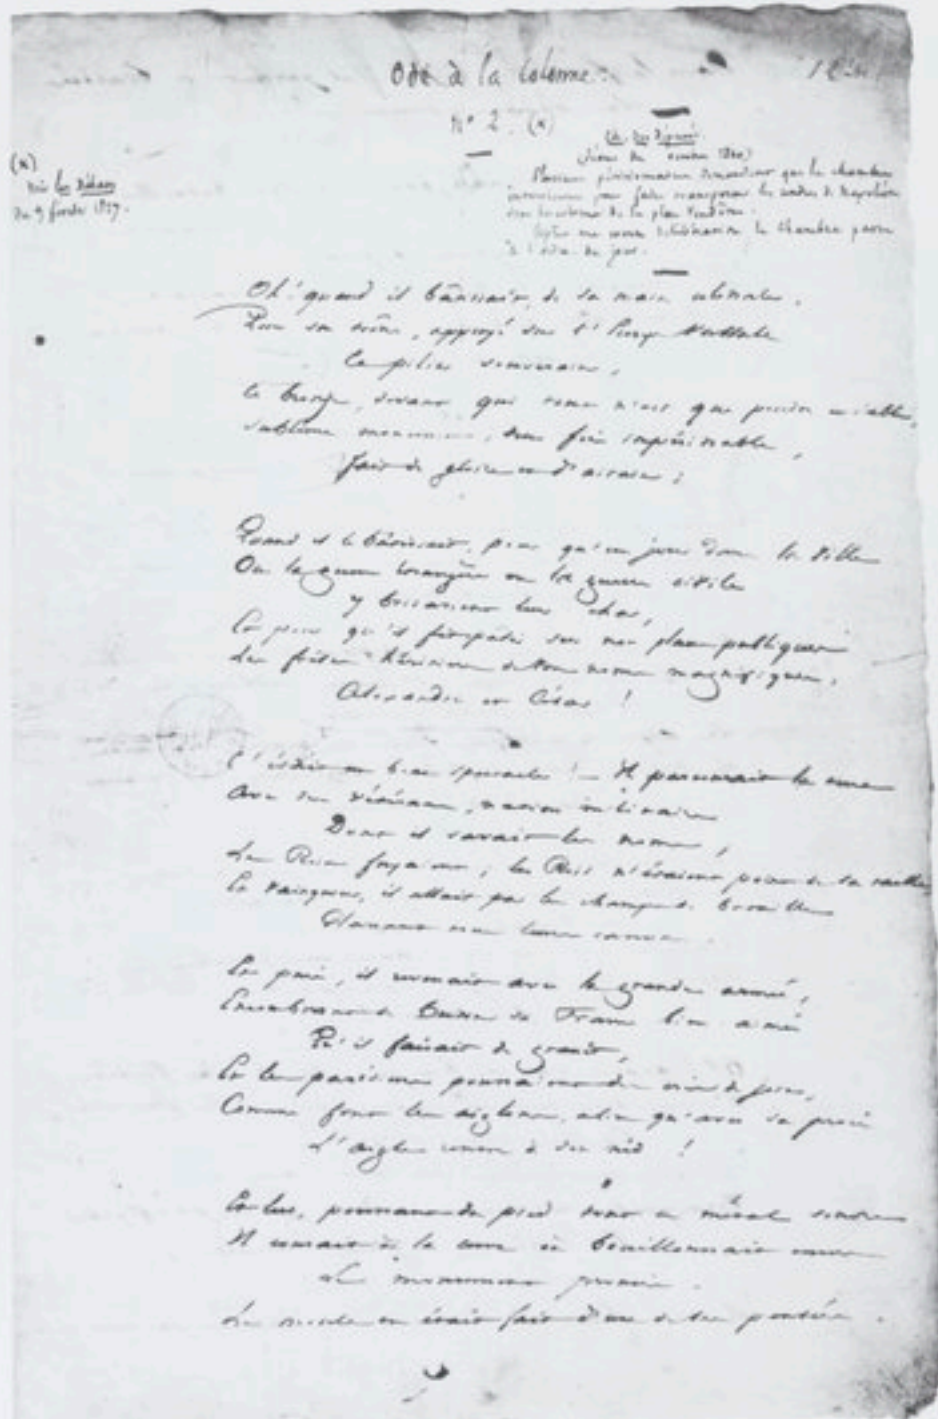 Ode à la Colonne.
N° 2. (*)
(*)
Voir les Débats
du 9 février 1827.
Ch. des Députés.
(séance du octobre 1830)
Plusieurs pétitionnaires demandent que la chambre
intervienne pour faire transporter les cendres de Napoléon
sous la colonne de la place Vendôme.
Après une courte délibération la Chambre passe
à l'ordre du jour.
Oh! quand il bâtissait, de sa main colossale,
Pour son trône, appuyé sur l'Europe Vassale
Ce pilier souverain,
Ce bronze, devant qui tout n'est que poudre et sable,
Sublime monument, deux fois impérissable,
Fait de gloire et d'airain;
Quand il le bâtissait, pour qu'un jour dans la ville
Ou la guerre étrangère ou la guerre civile
Y brisassent leur char,
Et pour qu'il fît pâlir sur nos places publiques
Les frêles héritiers de vos noms magnifiques,
Alexandre et César!
C'était un beau spectacle! – Il parcourait la terre
Avec ses vétérans, nation militaire
Dont il savait les noms;
Les Rois fuyaient; les Rois n'étaient point de sa taille
Et vainqueur, il allait par les champs de bataille
Glanant tous leurs canons.
Et puis, il revenait avec la grande armée,
Encombrant de butin sa France bien aimée
Qu'il faisait de granit,
Et les parisiens poussaient des cris de joie,
Comme font les aiglons, alors qu'avec sa proie
L'aigle rentre à son nid!
Et lui, poussant du pied tout ce métal sonore
Il courait à la cuve où bouillonnait encore
Le monument promis.
Le moule en était fait d'une de ses pensées.